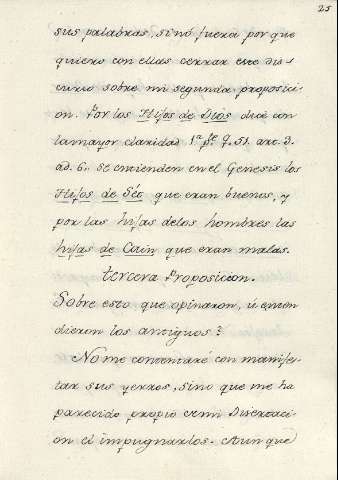 25
sus palabras, sinó fuera por que
quiero con ellas cerrar este dis-
curso sobre mi segunda proposici-
on. Por los Hijos de Dios dice con
la mayor claridad 1ª pte q. 51. art. 3.
ad. 6. se entienden en el Genesis los
Hijos de Sét que eran buenos, y
por las hijas delos hombres las
hijas de Caín que eran malas.
tercera Proposicion.
Sobre esto que opinaron, ú enten
dieron los antiguos?
No me contentaré con manifes-
tar sus yerros, sino que me ha
parecido propio en mi Disertaci-
on el impugnarlos. Aunque